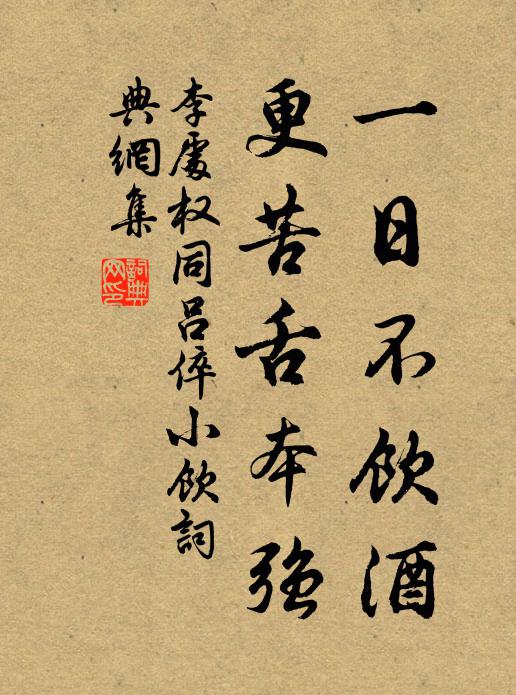 一日不飲酒
更苦舌本强
李處权同呂倅小飲詞
典網集
詞典
网印